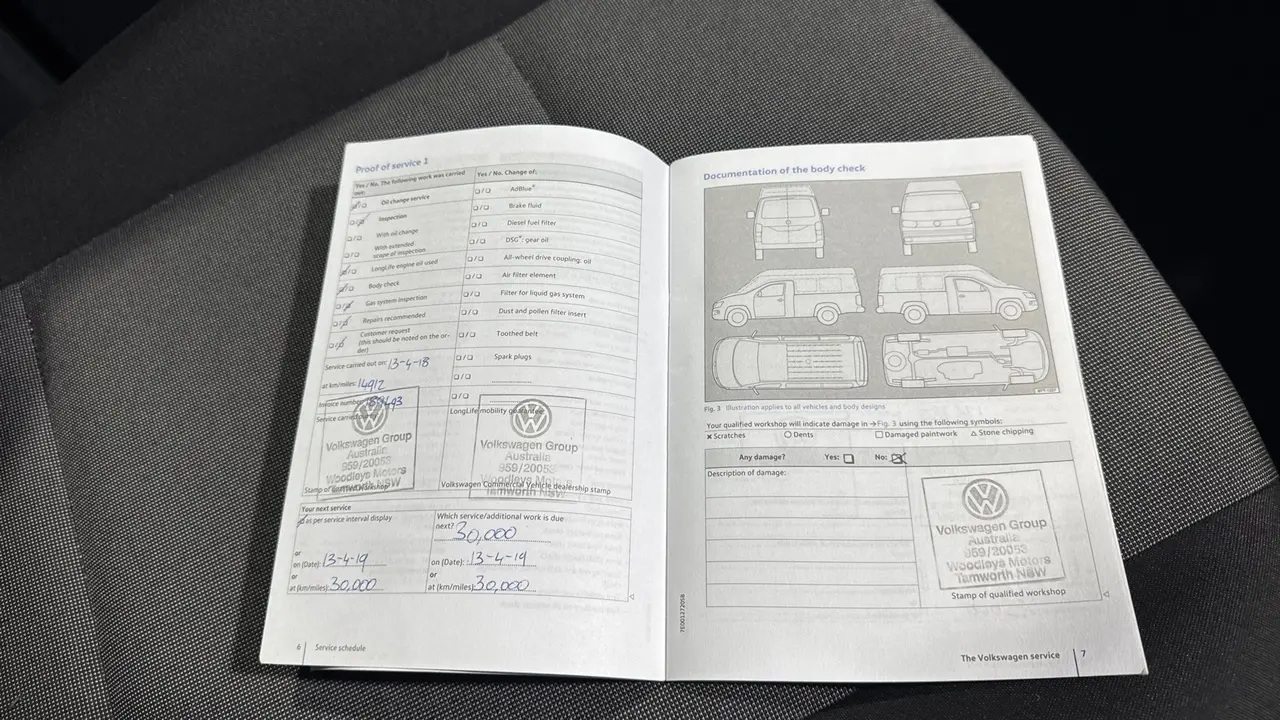 Proof of service 1
Yes / No. The following work was carried out:
Yes / No. Change of:
Oil change service
Inspection
With oil change
With extended
scope of inspection
LongLife engine oil used
Body check
Gas system inspection
Repairs recommended
Customer request
(this should be noted on the or-
der)
AdBlue®
Brake fluid
Diesel fuel filter
DSG®: gear oil
All-wheel drive coupling: oil
Air filter element
Filter for liquid gas system
Dust and pollen filter insert
Toothed belt
Spark plugs
Service carried out on: 13-4-18
at km/miles: 14912
Invoice number:
LongLife mobility guarantee
Volkswagen Group
Australia
959/20053
Woodleys Motors
Tamworth NSW
Volkswagen Group
Australia
959/20053
Woodleys Motors
Tamworth NSW
Volkswagen Commercial Vehicle dealership stamp
Your next service
as per service interval display
or
on (Date): 13-4-19
or
at (km/miles): 30,000
Which service/additional work is due
next? 30,000
on (Date): 13-4-19
or
at (km/miles): 30,000
6 Service schedule
Documentation of the body check
Fig. 3 Illustration applies to all vehicles and body designs
Your qualified workshop will indicate damage in →Fig. 3 using the following symbols:
× Scratches ○ Dents □ Damaged paintwork △ Stone chipping
Any damage? Yes: No:
Description of damage:
Volkswagen Group
Australia
959/20053
Woodleys Motors
Tamworth NSW
Stamp of qualified workshop
7E0012720SB
The Volkswagen service 7